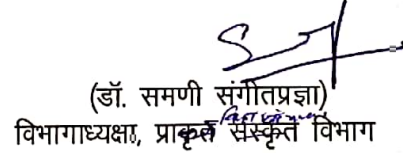 (डॉ. समणी संगीतप्रज्ञा)
विभागाध्यक्षा, प्राकृत संस्कृत विभाग